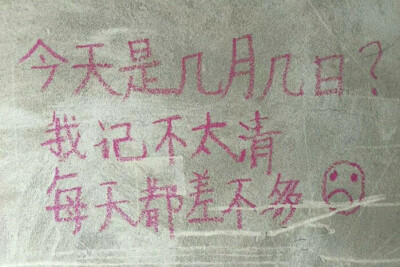 今天是几月几日？
我记不太清
每天都差不多